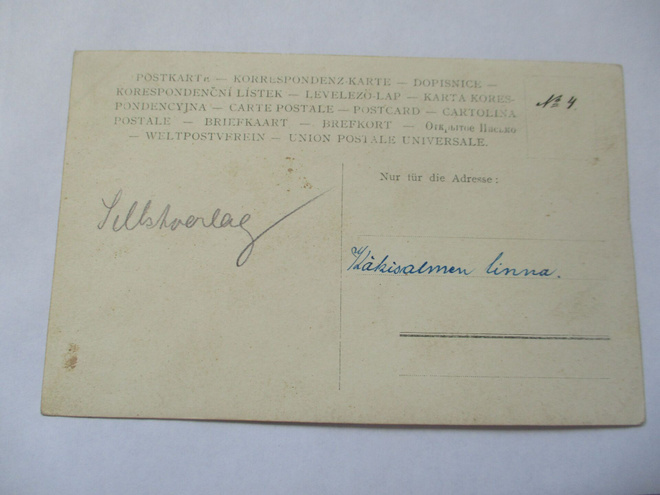 POSTKARTE — KORRESPONDENZ-KARTE — DOPISNICE —
KORESPONDENČNÍ LÍSTEK — LEVELEZÖ-LAP — KARTA KORES-
PONDENCYJNA — CARTE POSTALE — POSTCARD — CARTOLINA
POSTALE — BRIEFKAART — BREFKORT — Открытое Письмо
— WELTPOSTVEREIN — UNION POSTALE UNIVERSALE.
№ 4
Nur für die Adresse:
Selbstverlag
Käkisalmen linna.